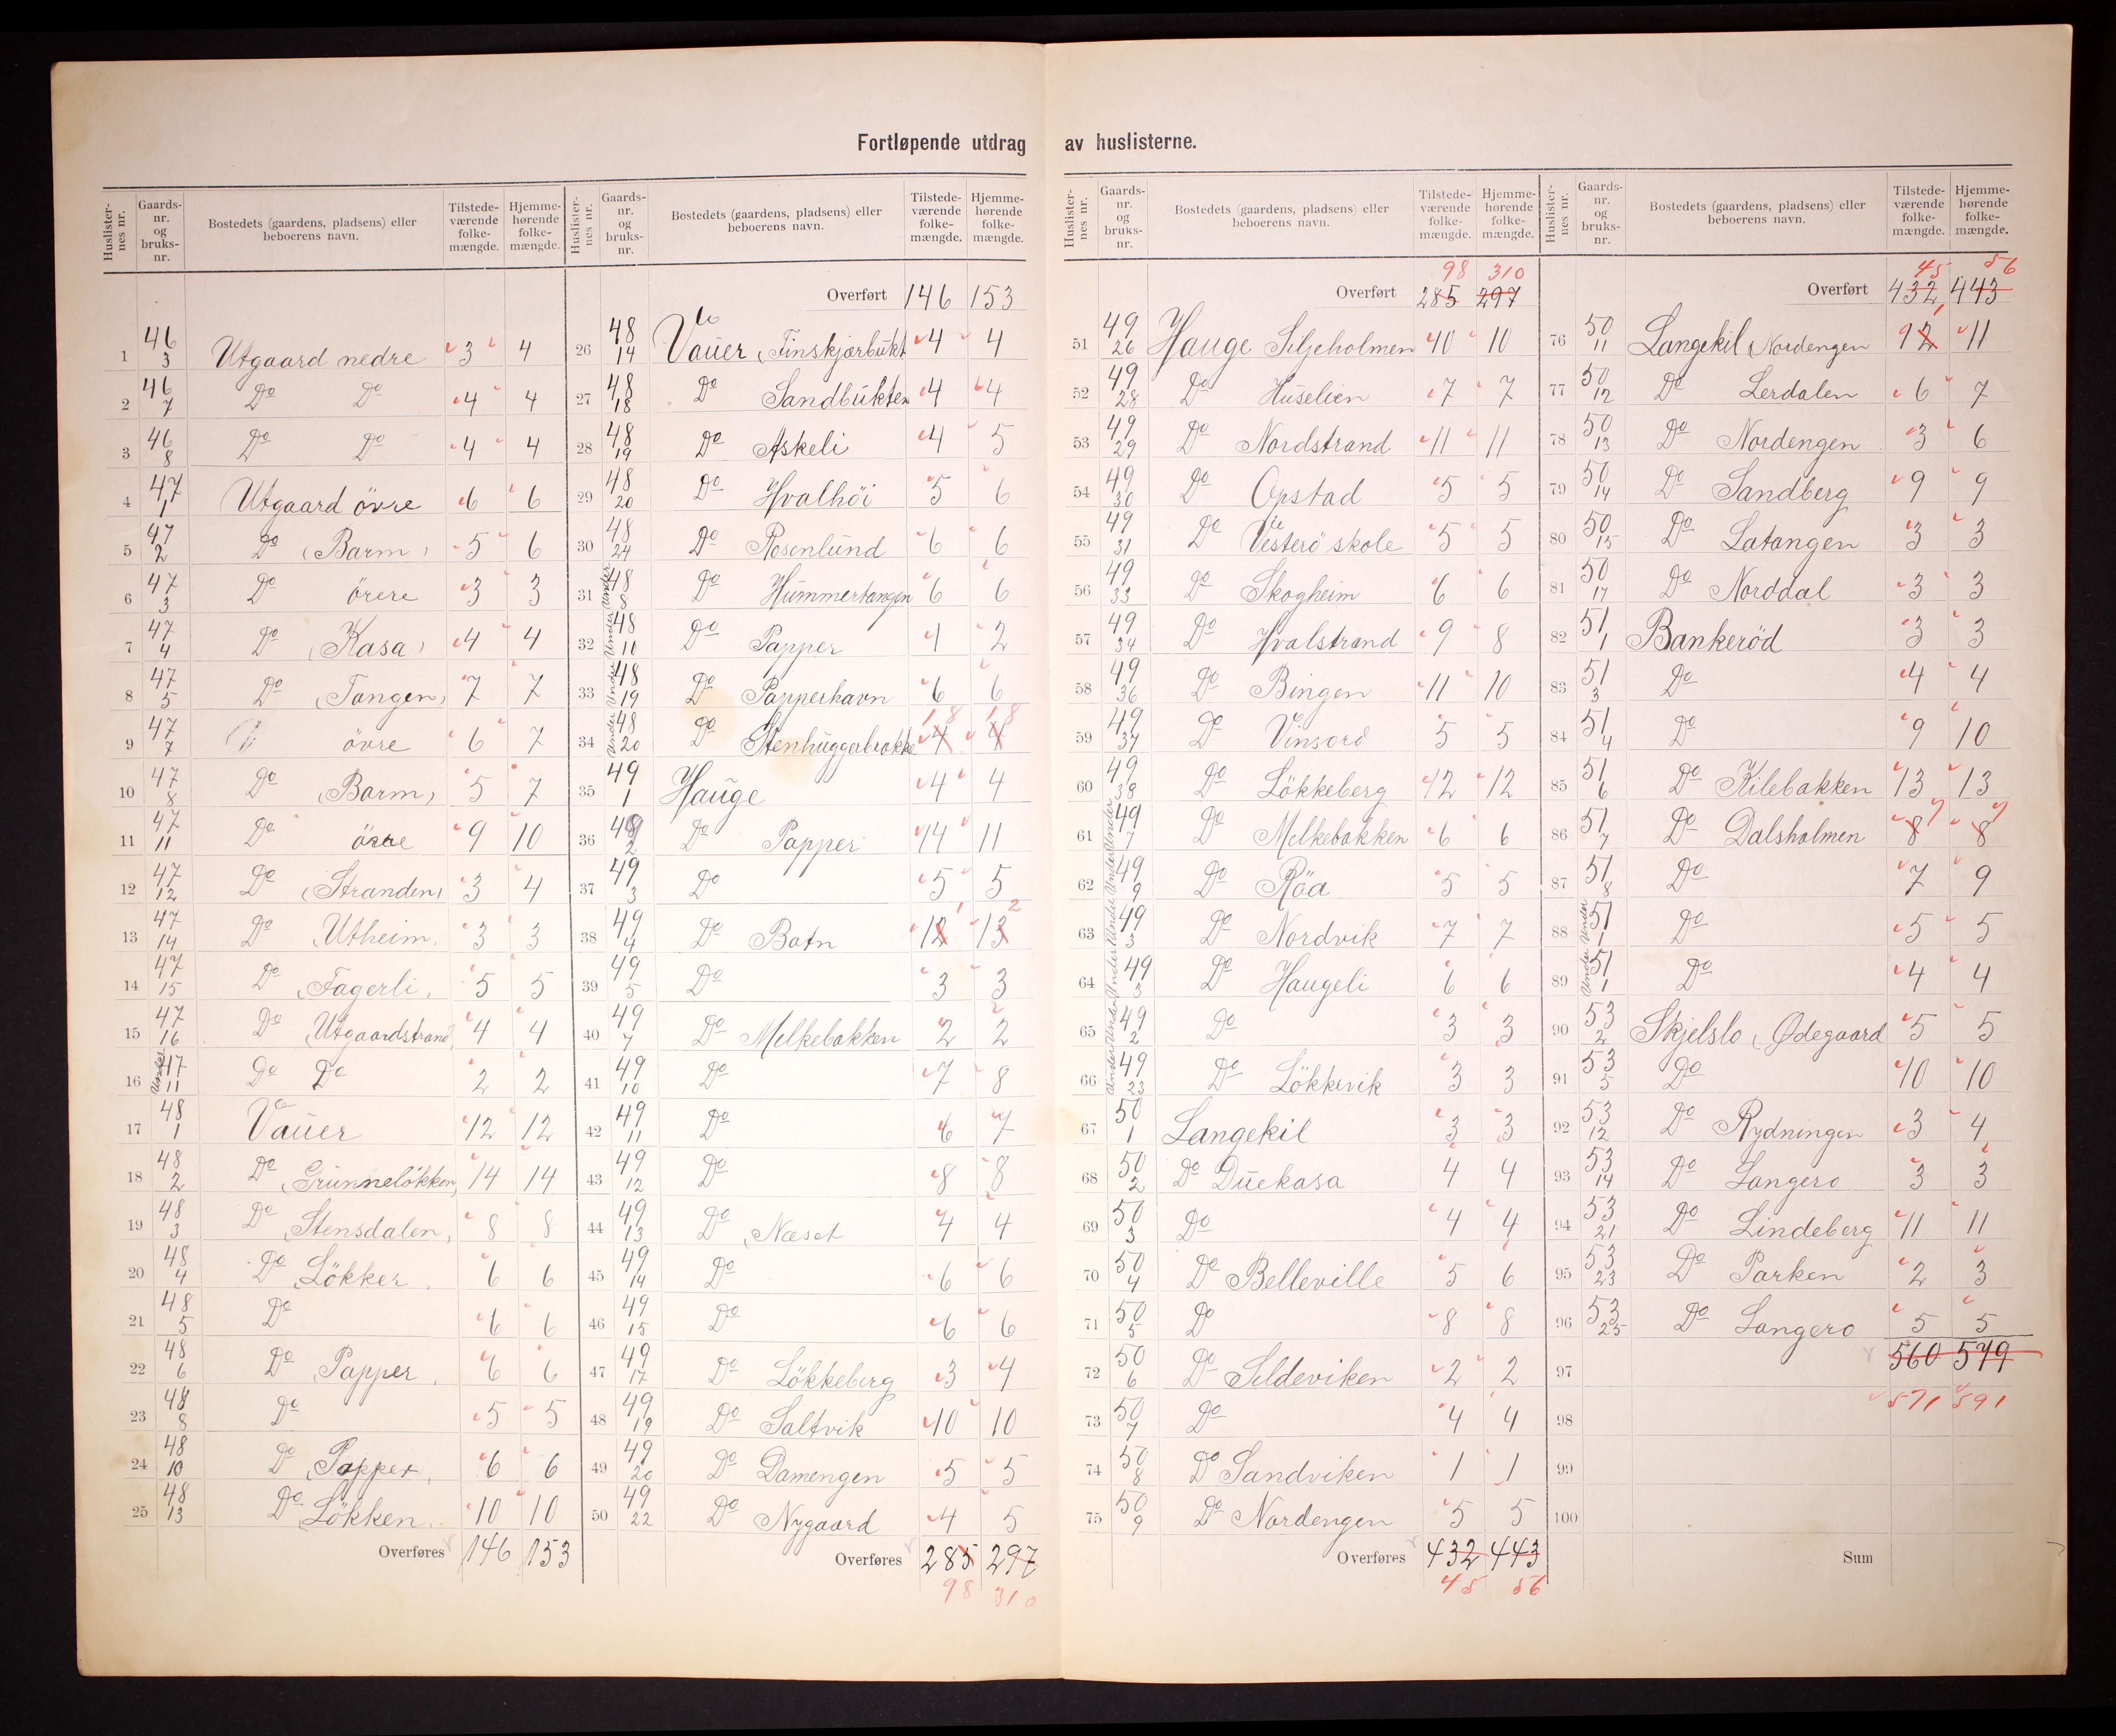 Fortløpende utdrag av huslisterne.
Huslister-nes nr. Gaards-nr. og bruks-nr. Bostedets (gaardens, pladsens) eller beboerens navn. Tilstede-værende folke-mængde. Hjemme-hørende folke-mængde.
1 46 3 Utgaard nedre 3 4
2 46 7 Do Do 4 4
3 46 8 Do Do 4 4
4 47 1 Utgaard övre 6 6
5 47 2 Do (Barm) 5 6
6 47 3 Do övre 3 3
7 47 4 Do (Kasa) 4 4
8 47 5 Do (Tangen) 7 7
9 47 7 övre 6 7
10 47 8 Do (Barm) 5 7
11 47 11 Do övre 9 10
12 47 12 Do (Stranden) 3 4
13 47 14 Do Utheim 3 3
14 47 15 Do Fagerli 5 5
15 47 16 Do Utgaardstrand 4 4
16 Under 47 11 Do Do 2 2
17 48 1 Vauer 12 12
18 48 2 Do Grünneløkken 14 14
19 48 3 Do Stensdalen 8 8
20 48 4 Do Lökker 6 6
21 48 5 Do 6 6
22 48 6 Do Papper 6 6
23 48 8 Do 5 5
24 48 10 Do Papper 6 6
25 48 13 Do Lökken 10 10
Overføres 146 153
Huslister-nes nr. Gaards-nr. og bruks-nr. Bostedets (gaardens, pladsens) eller beboerens navn. Tilstede-værende folke-mængde. Hjemme-hørende folke-mængde.
Overført 146 153
26 48 14 Vauer (Finskjærbukt 4 4
27 48 18 Do Sandbukten 4 4
28 48 19 Do Askeli 4 5
29 48 20 Do Hvalhöi 5 6
30 48 24 Do Rosenlund 6 6
31 Under 48 8 Do Hummertangen 6 6
32 Under 48 10 Do Papper 1 2
33 Under 48 19 Do Papperhavn 6 6
34 Under 48 20 Do Stenhuggerbrakke 18 18
35 49 1 Hauge 4 4
36 49 2 Do Papper 14 11
37 49 3 Do 5 5
38 49 4 Do Botn 12 13 1 2
39 49 5 Do 3 3
40 49 7 Do Melkebakken 2 2
41 49 10 Do 7 8
42 49 11 Do 6 7
43 49 12 Do 8 8
44 49 13 Do Næset 4 4
45 49 14 Do 6 6
46 49 15 Do 6 6
47 49 17 Do Lökkeberg 3 4
48 49 19 Do Saltvik 10 10
49 49 20 Do Damengen 5 5
50 49 22 Do Nygaard 4 5
Overføres 285 297
98 310
Huslister-nes nr. Gaards-nr. og bruks-nr. Bostedets (gaardens, pladsens) eller beboerens navn. Tilstede-værende folke-mængde. Hjemme-hørende folke-mængde.
98 310
Overført 285 297
51 49 26 Hauge Seljeholmen 10 10
52 49 28 Do Huselien 7 7
53 49 29 Do Nordstrand 11 11
54 49 30 Do Opstad 5 5
55 49 31 Do Vesterö skole 5 5
56 49 33 Do Skogheim 6 6
57 49 34 Do Hvalstrand 9 8
58 49 36 Do Bingen 11 10
59 49 37 Do Vinsord 5 5
60 49 38 Do Lökkeberg 12 12
61 Under 49 7 Do Melkebakken 6 6
62 Under 49 9 Do Röa 5 5
63 Under 49 3 Do Nordvik 7 7
64 Under 49 3 Do Haugeli 6 6
65 Under 49 2 Do 3 3
66 Under 49 23 Do Lökkevik 3 3
67 50 1 Langekil 3 3
68 50 2 Do Duekasa 4 4
69 50 3 Do 4 4
70 50 4 Do Belleville 5 6
71 50 5 Do 8 8
72 50 6 Do Sildeviken 2 2
73 50 7 Do 4 4
74 50 8 Do Sandviken 1 1
75 50 9 Do Nordengen 5 5
Overføres 432 443
45 56
Huslister-nes nr. Gaards-nr. og bruks-nr. Bostedets (gaardens, pladsens) eller beboerens navn. Tilstede-værende folke-mængde. Hjemme-hørende folke-mængde.
45 56
Overført 432 443
76 50 11 Langekil Nordengen 12 11
77 50 12 Do Lerdalen 6 7
78 50 13 Do Nordengen 3 6
79 50 14 Do Sandberg 9 9
80 50 15 Do Latangen 3 3
81 50 17 Do Norddal 3 3
82 51 1 Bankeröd 3 3
83 51 3 Do 4 4
84 51 4 Do 9 10
85 51 6 Do Kilebakken 13 13
86 51 7 Do Dalsholmen 8 8 7 7
87 51 8 Do 7 9
88 Under 51 1 Do 5 5
89 Under 51 1 Do 4 4
90 53 2 Skjelsbo (Ødegaard 5 5
91 53 5 Do 10 10
92 53 12 Do Rydningen 3 4
93 53 14 Do Langero 3 3
94 53 21 Do Lindeberg 11 11
95 53 23 Do Parken 2 3
96 53 25 Do Langero 5 5
97 560 579
98 571 591
99
100
Sum